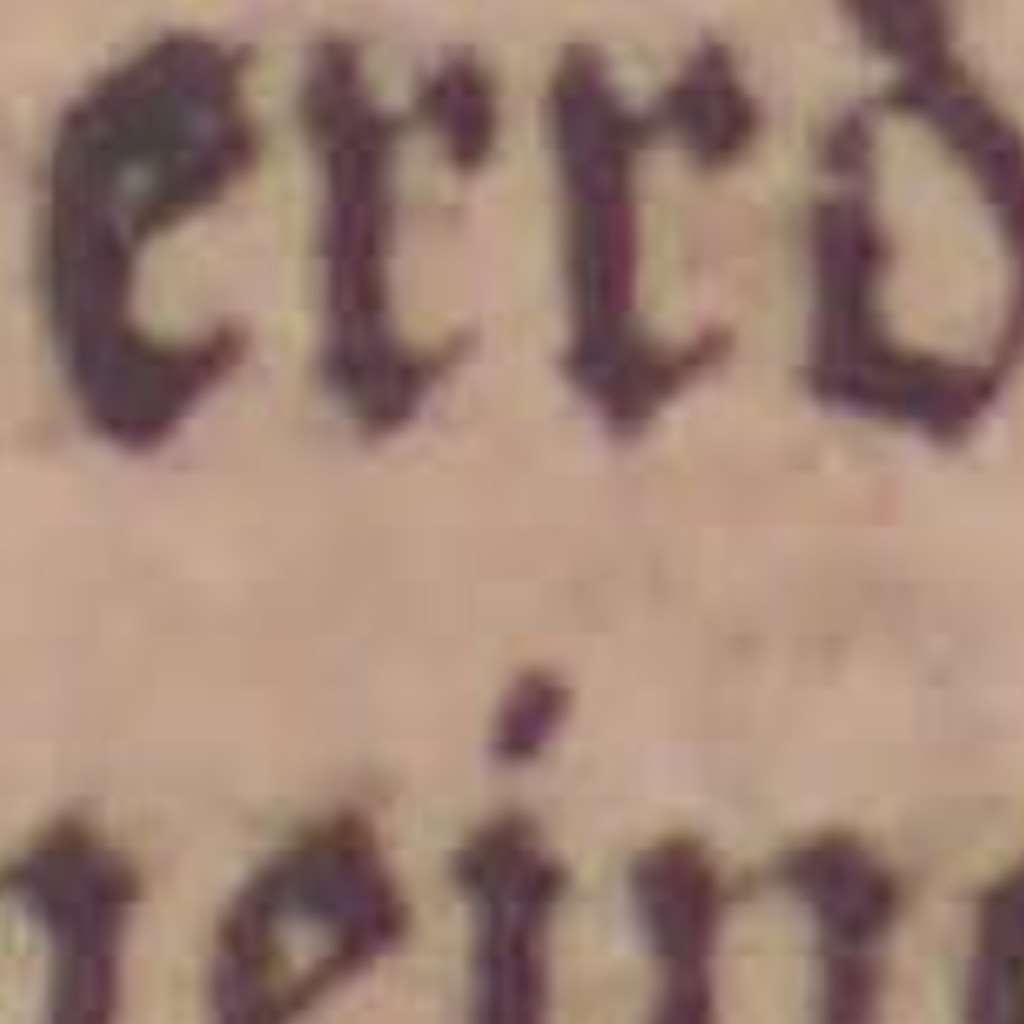 errd
nein